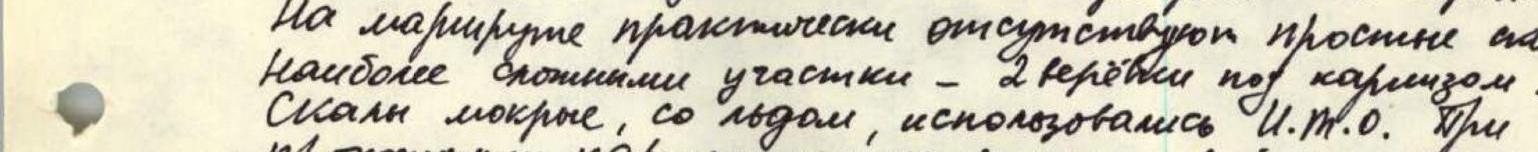 На маршруте практически отсутствуют простые
Наиболее сложными участки - 2 верёвки под карнизом.
Скалы мокрые, со льдом, использовались И.Т.О. При